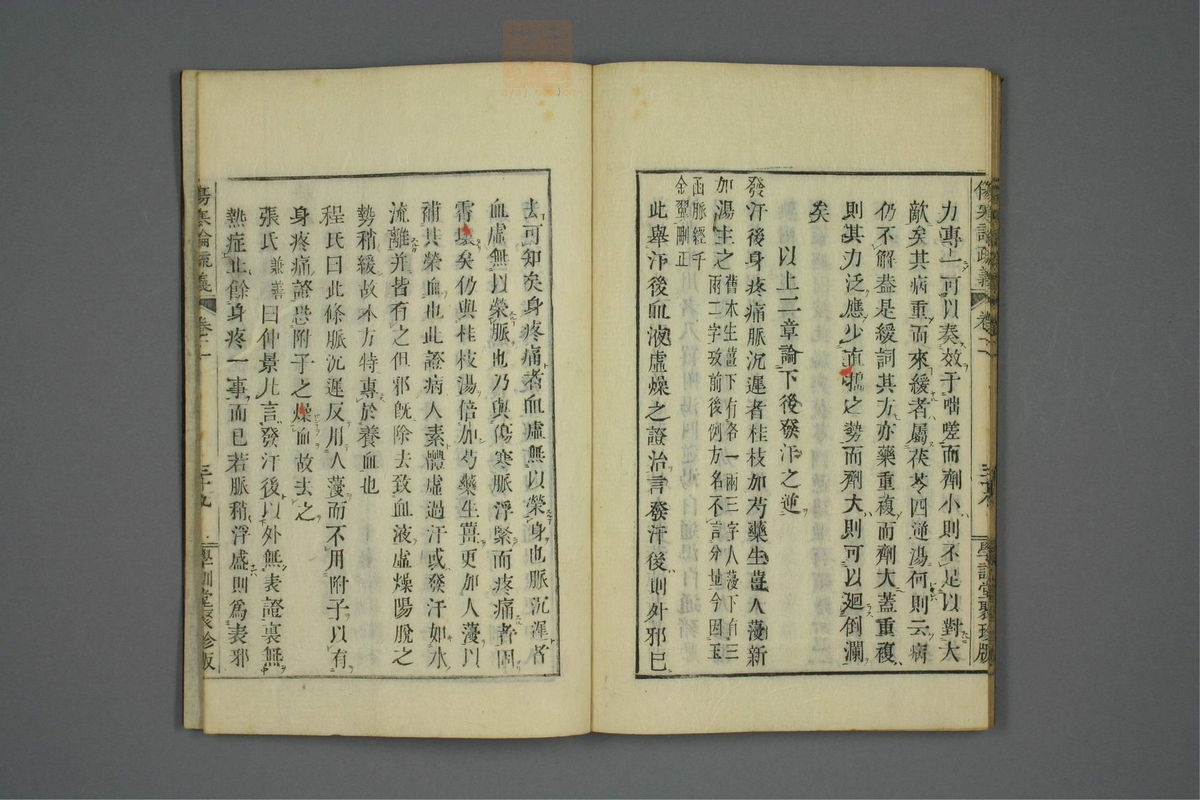 力專一可以奏效于喘嗟而劑小則不足以對大
敵矣其病重而來緩者屬茯苓四逆湯何則云病
仍不解葢是緩詞其方亦藥重複而劑大蓋重複
則其力泛應少直之勢而劑大則可以廻倒瀾
矣
以上二章論下後發汗之逆
發汗後身疼痛脈沉遲者桂枝加芍藥生薑人薓新
加湯主之舊本生薑下有各一兩三字人薓下有三
兩二字攷前後例方名不言分量今因玉
函脈經千
金翼刪正
此舉汗後血液虛燥之證治言發汗後則外邪已
傷寒論疏義
卷二
三十九
學訓堂聚珍版
去可知矣身疼痛者血虛無以榮身也脈沉遲者
血虛無以榮脈也乃與傷寒脈浮緊而疼痛者固
霄壤矣仍與桂枝湯倍加芍藥生薑更加人薓以
補其榮血也此證病人素體虛過汗或發汗如水
流離并皆有之但邪旣除去致血液虛燥陽脫之
勢稍緩故本方特專於養血也
程氏曰此條脈沉遲反用人薓而不用附子以有
身疼痛證恐附子之燥血故去之
張氏兼善曰仲景凡言發汗後以外無表證裏無
熱症止餘身疼一事而已若脈稍浮盛則爲表邪
傷寒論疏義
卷二
三十九
學訓堂聚珍版